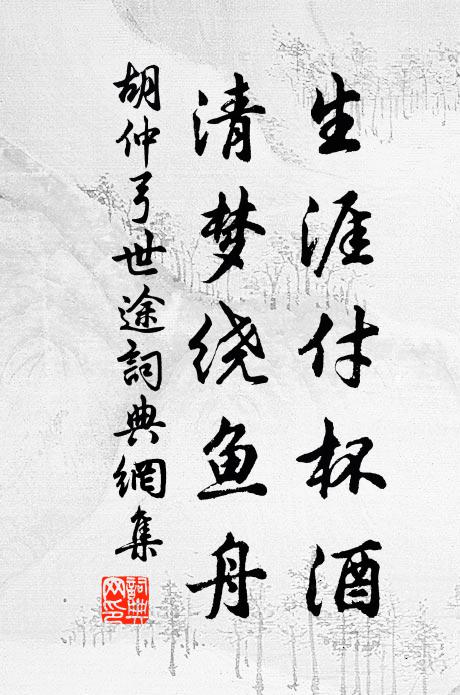 生涯付杯酒
清梦绕鱼舟
胡仲弓世途詞典網集
詞典
网印